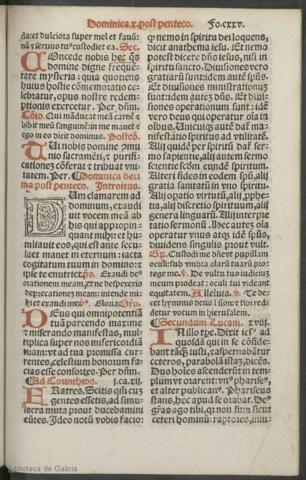 Dominica.x.post penteco. Fo.cxxv.
daret dulcẽ super mel et fauũ.
Sec.
COncede nobis
domine digne frequẽ
tare mysteria: quia quotiens
huius hostie cõmemoratio ce-
lebratur, opus nostre redem-
ptionis exercetur. Per dñm.
Cõio. Qui mãducat meã carnẽ ⁊
bibit meũ sanguinẽ in me manet ⁊
ego in eo dicit dominus. Postcõ.
TUi nobis domine cõmu
nio sacramẽti, ⁊ purifi-
cationẽ cõferat ⁊ tribuat vni
tatem. Per. Dominica deci
ma post penteco. Introitus.
DUm clamarem ad
dominum, exaudi
uit vocem meã ab
his qui appropin-
quant mihi: et hu-
miliauit eos, qui est ante secu-
la ⁊ manet in eternum: iacta
cogitatum tuum in domino: ⁊
ipse te enutriet. ps. Exaudi deus
orationem meam, et ne despexeris
deprecationem meam: intende mi-
hi et exaudi me. Gloria. Oro.
DEus qui omnipotentiã
tuã parcendo maxime
⁊ miserando manifestas, mul
tiplica super nos misericordiã
tuã: vt ad tua promissa cur-
rentes, celestium bonorum fa-
cias esse consortes. Per dñm.
Ad Corinthios. j.ca.xij.
FRatres. Scitis qm̃ cuz
gentes essetis, ad simu-
lacra muta prout ducebamini
eũtes. Ideo notũ vobis facio:
q̃ nemo in spiritu dei loquens,
dicit anathema iesu. Et nemo
potest dicere dñs iesus, nisi in
spiritu sancto. Diuisiones vero
gratiarũ sunt: idem autẽ spũs.
Et diuisiones ministrationũ
sunt: idem autẽ dñs. Et diui-
siones operationum sunt: idẽ
vero deus qui operatur oĩa in
oĩbus. Unicuiq; autẽ dat̃ ma-
nifestatio spiritus ad vtilitatẽ.
Alij quidẽ per spiritũ dat̃ ser-
mo sapientie, alij autem sermo
scientie scďm eundẽ spiritum.
Alteri fides in eodem spũ, alij
gratia sanitatũ in vno spiritu.
Alij opatio virtutũ, alij, pphe-
tia, alij discretio spirituum, alij
genera linguarũ. Alij interpre
tatio sermonũ. Hec autẽ oĩa
operatur vnus atq; idẽ spũs,
diuidens singulis prout vult.
Custodi me dñe vt pupillam
oculi: sub vmbra alarũ tuarũ pro-
tege me. De vultu tuo iudiciũ
meum prodeat: oculi tui videant
equitatem. Alleluia. Te de-
cet hymnus deus ĩ sion: ⁊ tibi red-
detur votum in hierusalem.
Secundum Lucam. xviij.
IN illo tẽpe. Dixit iesus ad
quosdã qui in se cõfide-
bant tãq̃ iusti, ⁊ aspernabãtur
ceteros, parabolã istã, dicẽs.
Duo hoĩes ascenderũt in tem-
plum vt orarent: vnus phariseus
et alter publicanus. Phariseus
stans, hec apud se orabat. De-
gratias ago tibi, q̃ non sum sicut
ceteri hominũ: raptores, iniu-
Biblioteca de Galicia